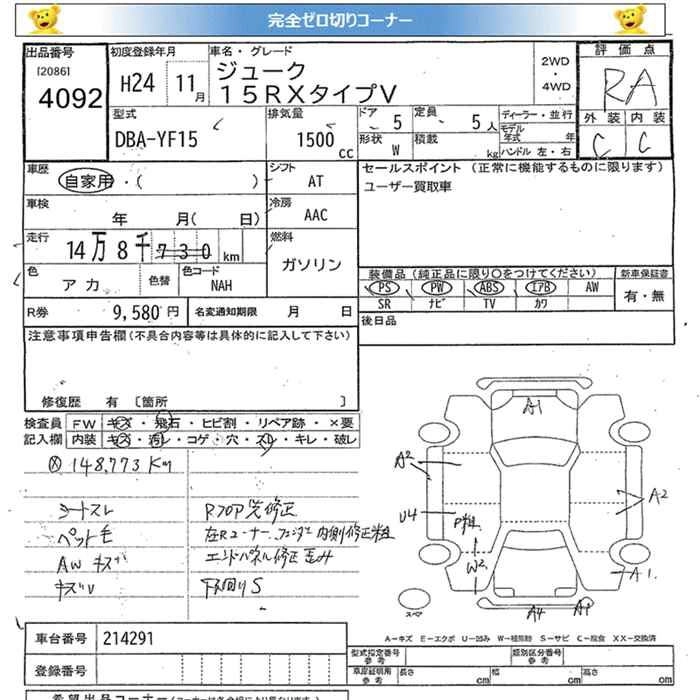 完全ゼロ切りコーナー
出品番号 初度登録年月 車名・グレード 評価点
[2086] 4092 H24 11月 ジューク 2WD・4WD RA
15RXタイプV
外装 内装
C C
型式 排気量 ドア 定員 ディーラー・並行
DBA-YF15 1500cc 5 5人 モデル年式 年
形状 W 積載 kg ハンドル 左・右
車歴 シフト セールスポイント(正常に機能するものに限ります)
自家用・( ) AT ユーザー買取車
車検 冷房
年 月( 日) AAC
走行 燃料
14万8千730km ガソリン
色 色替 色コード 装備品(純正品に限り〇をつけてください) 新車保証書
アカ NAH PS PW ABS エアB AW 有・無
SR ナビ TV カワ
R券 9,580円 名変通知期限 月 日 後日品
注意事項申告欄(不具合内容等は具体的に記入して下さい)
修復歴 有 [箇所 ]
検査員 FW キズ・飛石・ヒビ割・リペア跡・×要
記入欄 内装 キズ・汚レ・コゲ・穴・スレ・キレ・破レ
148,773 Km
シートスレ
ペット毛
AWキズ
キズV
エンドパネル修正歪み
下回りS
A1
A2
A2
U4
P粗
W2
A1
A4 A1
スペア
A-キズ E-エクボ U-凹み W-補修跡 S-サビ C-腐食 XX-交換済
車台番号 214291
登録番号
型式指定番号 参考 類別区分番号 参考
車庫証明用 参考 長さ cm 幅 cm 高さ cm
希望出品コーナー